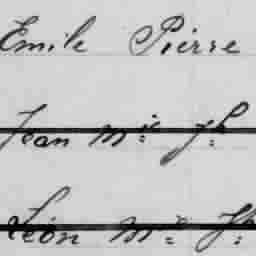 Emile Pierre
Jean M.ie J.h
Léon M.e J.h